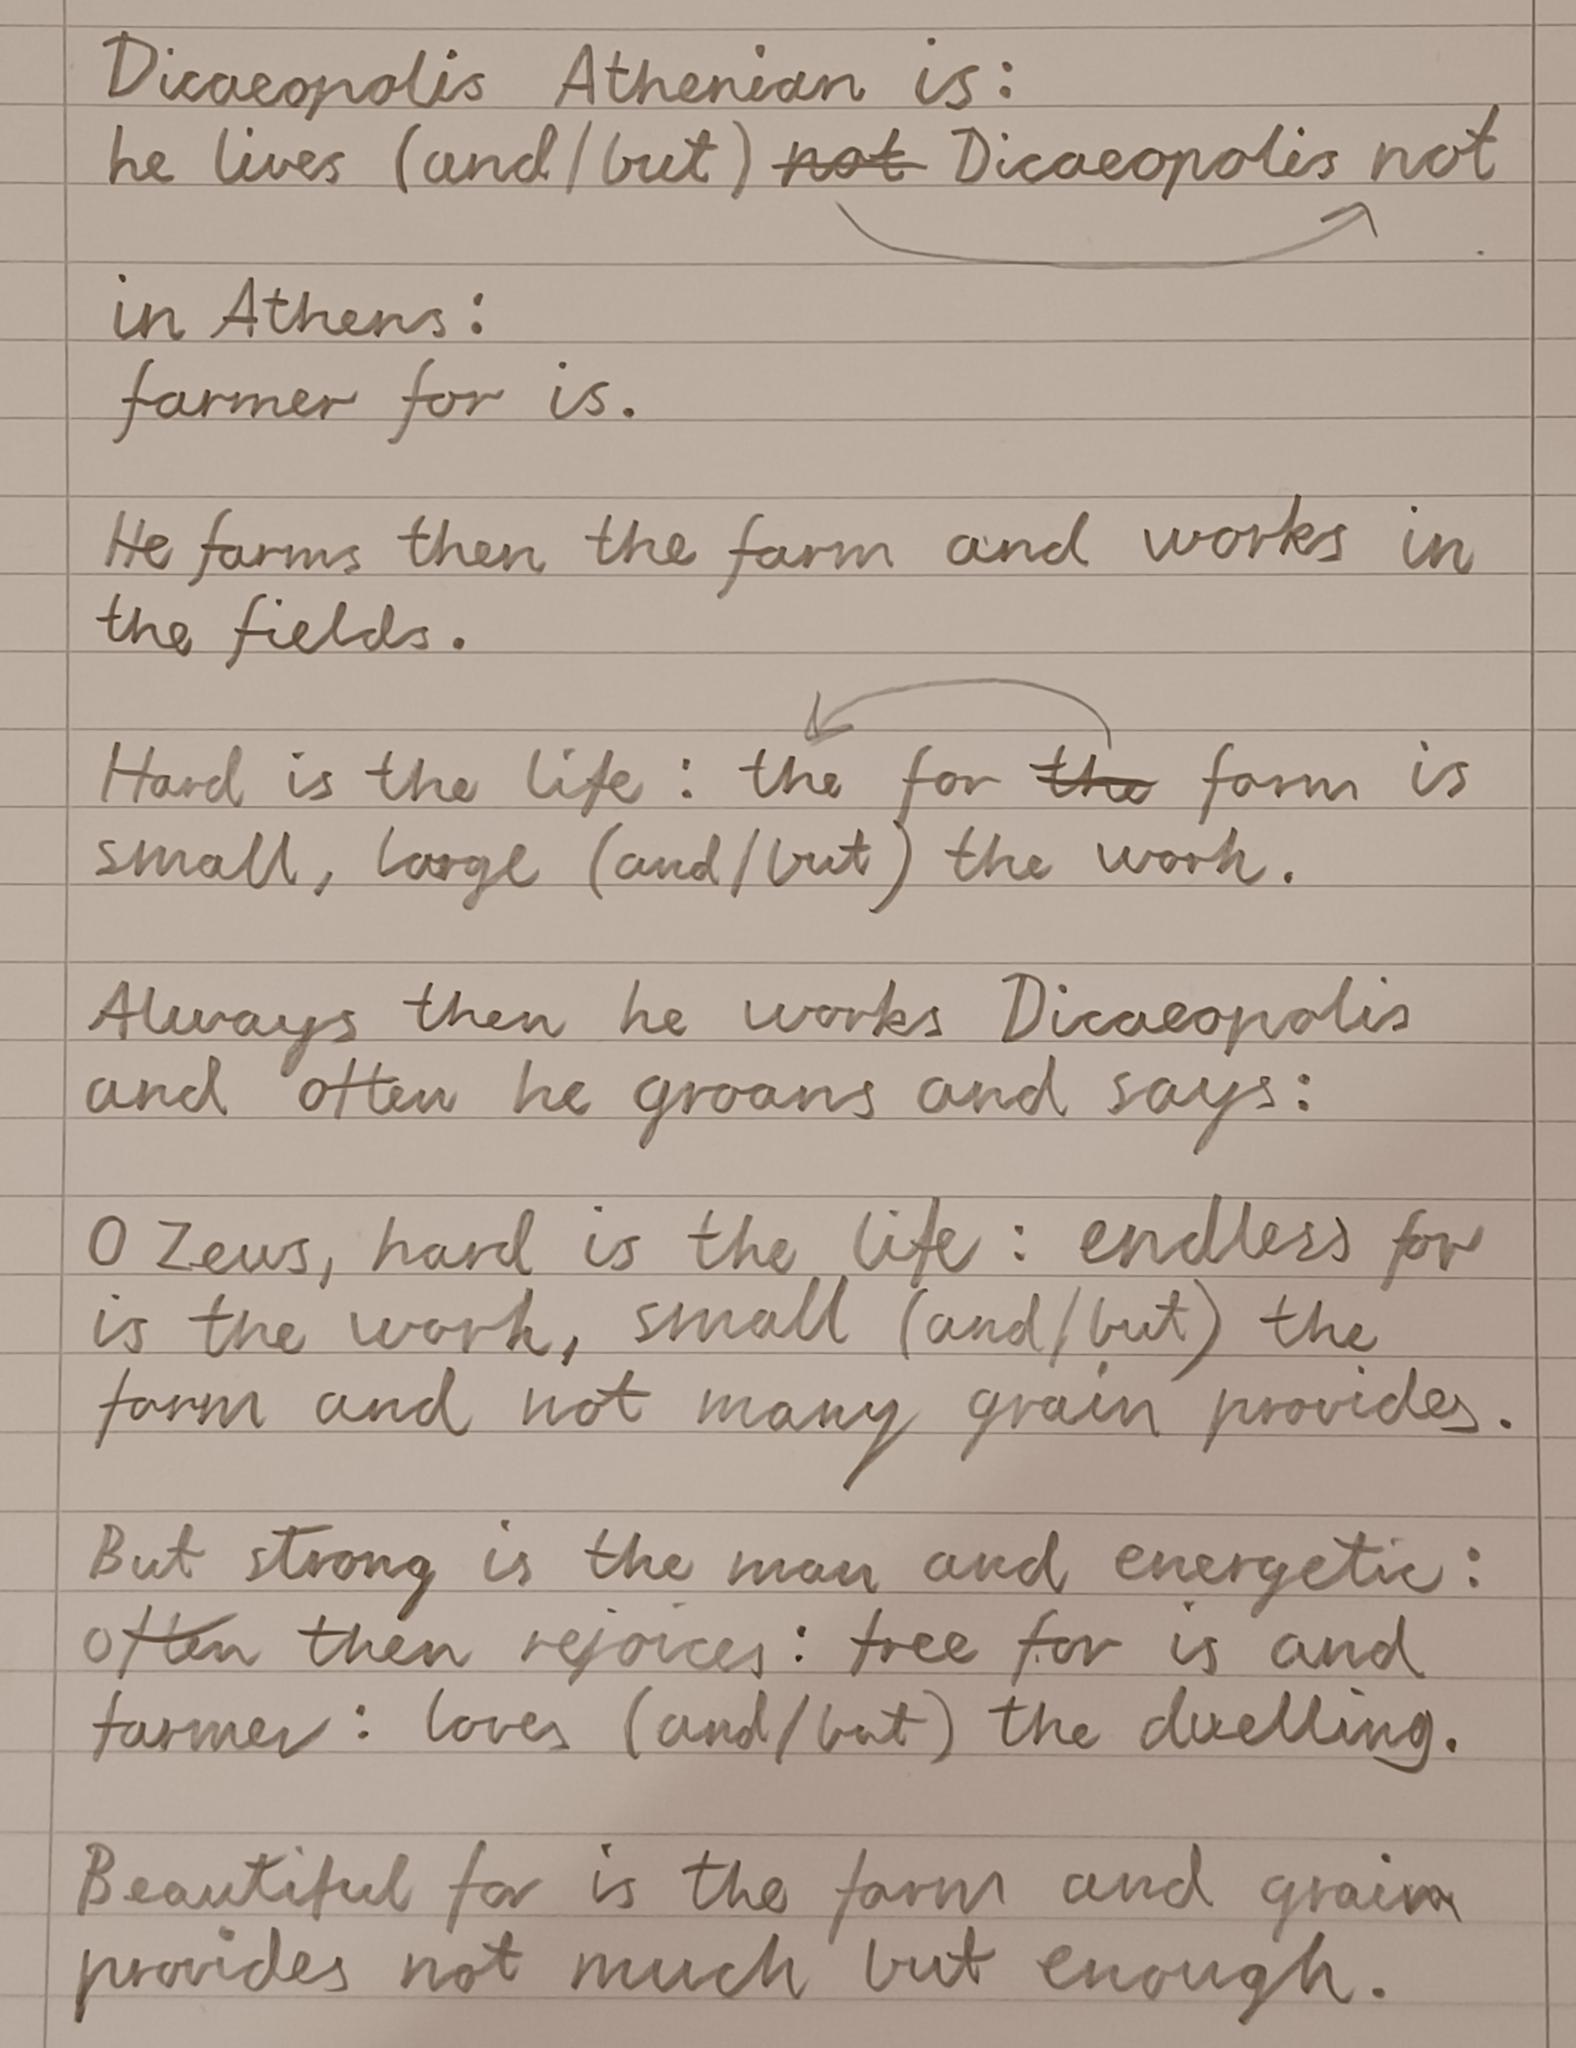 Dicaeopolis Athenian is:
he lives (and/but) not Dicaeopolis not
in Athens:
farmer for is.
He farms then the farm and works in
the fields.
Hard is the life: the for the farm is
small, large (and/but) the work.
Always then he works Dicaeopolis
and often he groans and says:
O Zeus, hard is the life: endless for
is the work, small (and/but) the
farm and not many grain provides.
But strong is the man and energetic:
often then rejoices: free for is and
farmer: loves (and/but) the dwelling.
Beautiful for is the farm and grain
provides not much but enough.